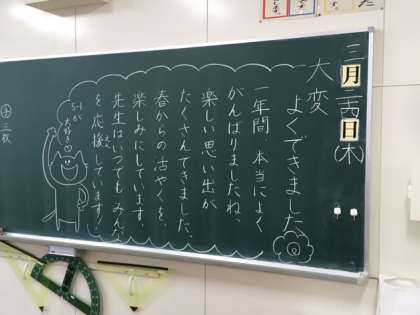 三月二十四日(木)
大変
よくできました
一年間、本当によく
がんばりましたね。
楽しい思い出が
たくさんできました。
春からの古やくを、
楽しみにしています。
先生はいつでもみんな
を応援しています!
5-1が
大好き